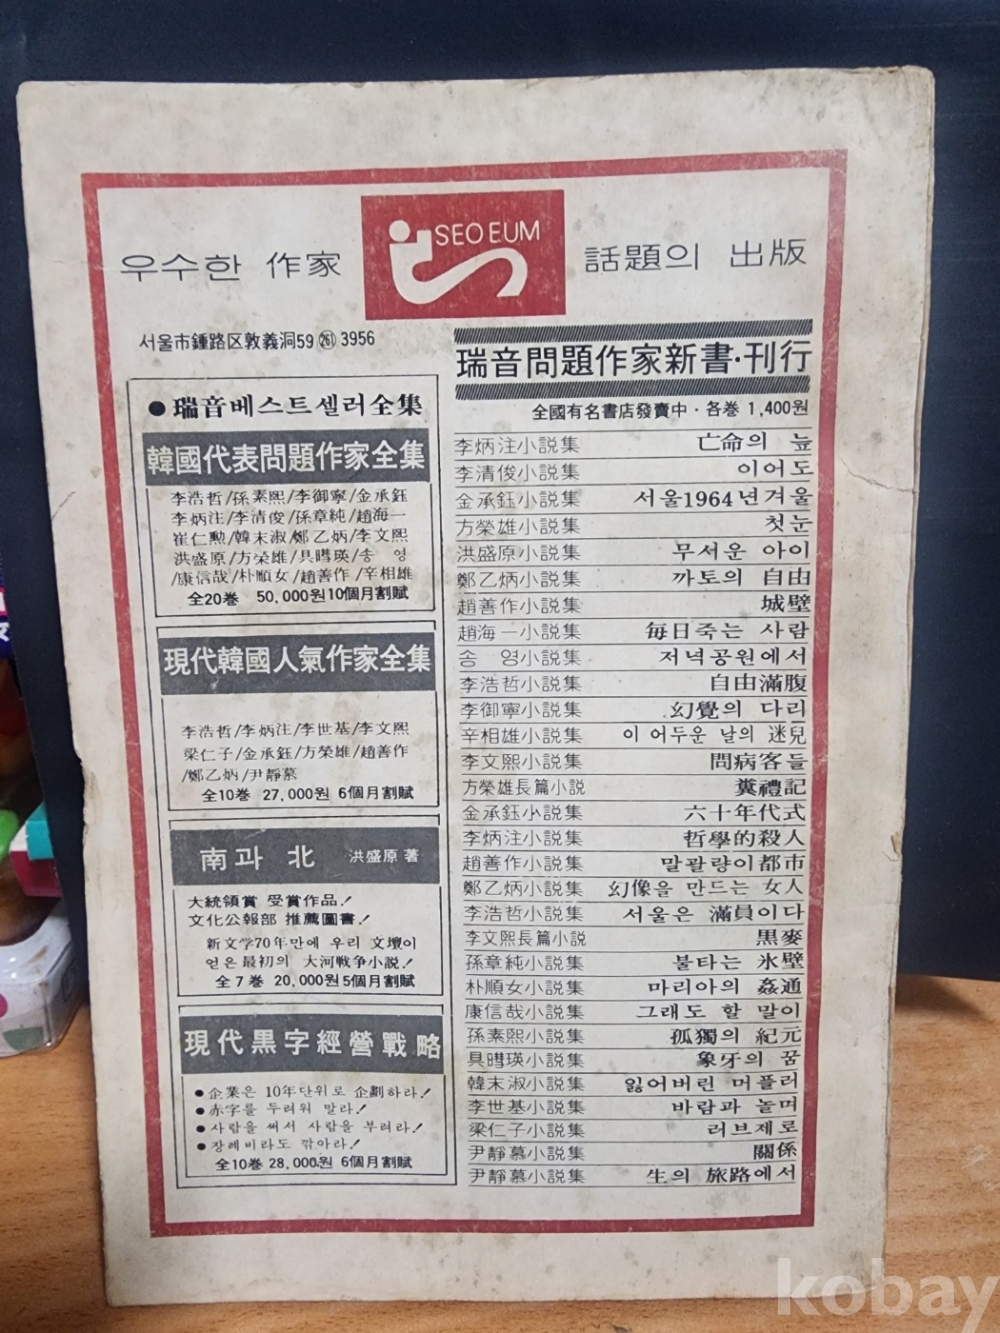 우수한 作家
SEOEUM
話題의 出版
서울市鍾路区敦義洞59 261 3956
● 瑞音베스트셀러全集
韓國代表問題作家全集
李浩哲/孫素熙/李御寧/金承鈺
李炳注/李清俊/孫章純/趙海一
崔仁勲/韓末淑/鄭乙炳/李文熙
洪盛原/方榮雄/具暳瑛/송 영
/康信哉/朴順女/趙善作/辛相雄
全20巻 50,000원 10個月割賦
現代韓國人氣作家全集
李浩哲/李炳注/李世基/李文熙
梁仁子/金承鈺/方榮雄/趙善作
/鄭乙炳/尹靜慕
全10巻 27,000원 6個月割賦
南과 北 洪盛原 著
大統領賞 受賞作品!
文化公報部 推薦圖書!
新文学70年만에 우리 文壇이
얻은最初의 大河戦争小説!
全7巻 20,000원 5個月割賦
現代黒字經營戰略
● 企業은 10年단위로 企劃하라!
● 赤字를 두려워 말라!
● 사람을 써서 사람을 부려라!
● 장례비라도 깎아라!
全10巻 28,000원 6個月割賦
瑞音問題作家新書·刊行
全國有名書店發賣中·各巻 1,400원
李炳注小説集 亡命의 늪
李清俊小説集 이어도
金承鈺小説集 서울1964년겨울
方榮雄小説集 첫눈
洪盛原小説集 무서운 아이
鄭乙炳小説集 까토의 自由
趙善作小説集 城壁
趙海一小説集 每日죽는 사람
송 영小説集 저녁공원에서
李浩哲小説集 自由滿腹
李御寧小説集 幻覺의 다리
辛相雄小説集 이 어두운 날의 迷兒
李文熙小説集 問病客들
方榮雄長篇小説 糞禮記
金承鈺小説集 六十年代式
李炳注小説集 哲學的殺人
趙善作小説集 말괄량이都市
鄭乙炳小説集 幻像을 만드는 女人
李浩哲小説集 서울은 滿員이다
李文熙長篇小説 黒麥
孫章純小説集 불타는 氷壁
朴順女小説集 마리아의 姦通
康信哉小説集 그래도 할 말이
孫素熙小説集 孤獨의 紀元
具暳瑛小説集 象牙의 꿈
韓末淑小説集 잃어버린 머플러
李世基小説集 바람과 놀며
梁仁子小説集 러브제로
尹靜慕小説集 關係
尹靜慕小説集 生의 旅路에서
kobay